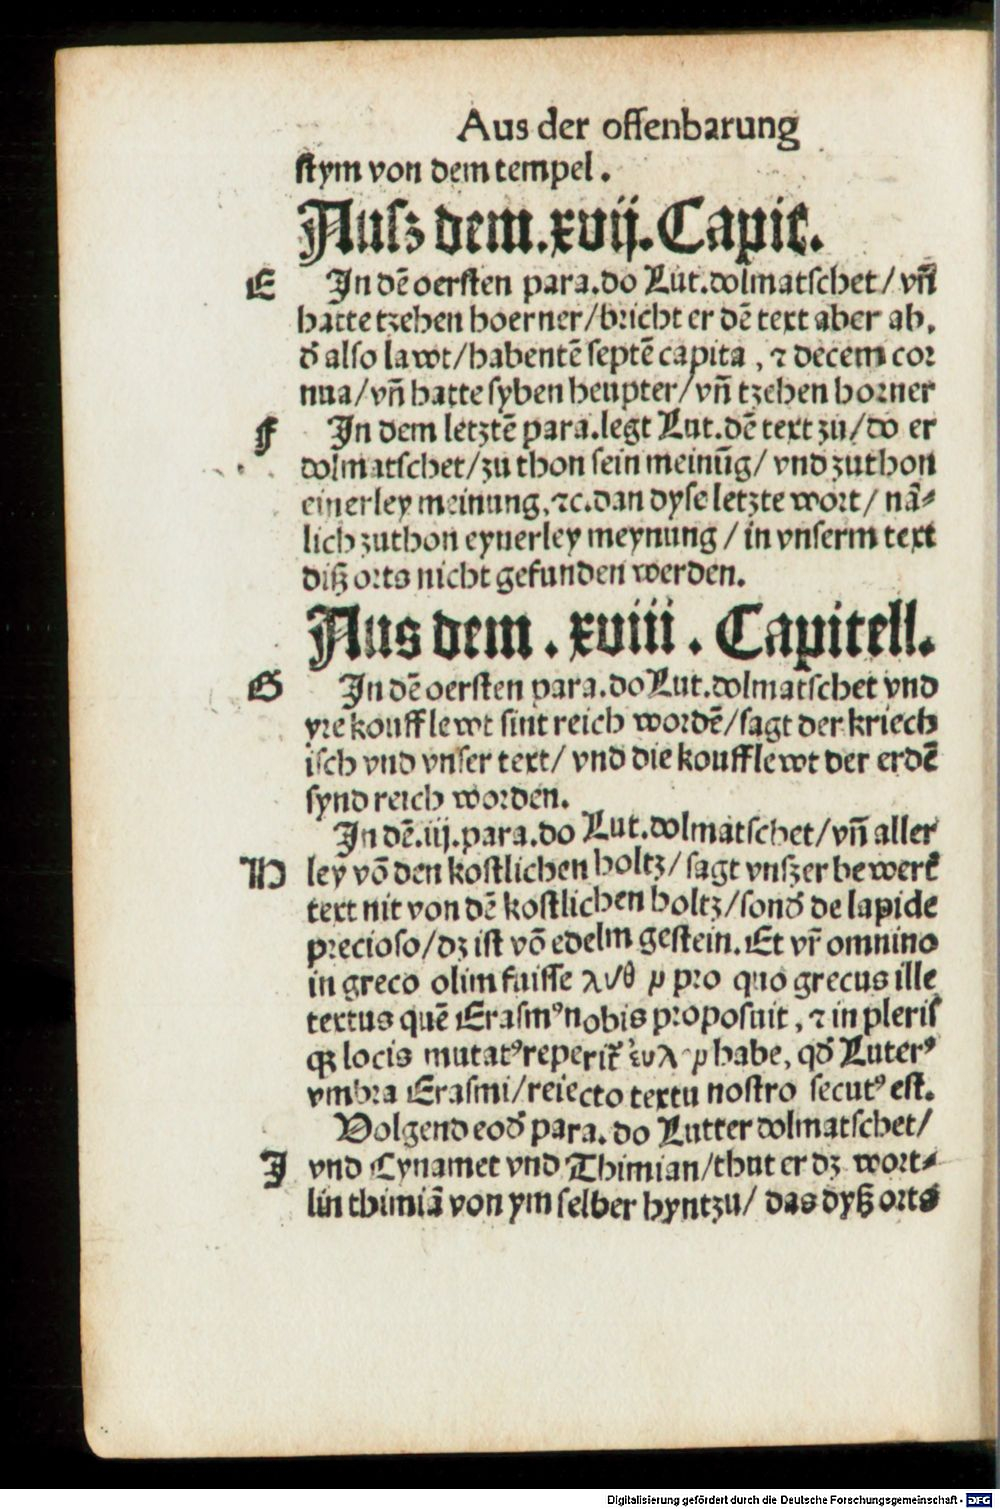 Aus der offenbarung
stym von dem tempel.
Ausz dem.xvij.Capit.
E In dē oersten para.do Lut.dolmatschet/vn̄
hatte tzehen hoerner/bricht er dē text aber ab,
đ also lawt/habentē septē capita, ⁊ decem cor
nua/vn̄ hatte syben heupter/vn̄ tzehen horner
F In dem letztē para.legt Lut.dē text zu/do er
dolmatschet/zu thon sein meinūg/vnd zuthon
einerley meinung,⁊c.dan dyse letzte wort/nā⸗
lich zuthon eynerley meynung/in vnserm text
diß orts nicht gefunden werden.
Aus dem.xviii.Capitell.
G In dē oersten para.do Lut.dolmatschet vnd
yre koufflewt sint reich wordē/sagt der kriech
isch vnd vnser text/vnd die koufflewt der erdē
synd reich worden.
In dē.iij.para.do Lut.dolmatschet/vn̄ aller
H ley vō den kostlichen holtz/sagt vnszer bewert̄
text nit von dē kostlichen holtz/sonđ de lapide
precioso/dz ist vō edelm gestein.Et vr̄ omnino
in greco olim fuisse pro quo grecus ille
textus quē Erasmꝰ nobis proposuit,⁊ in pleris
qꝫ locis mutatꝰ reperit̄ habe, qđ Luterꝰ
vmbra Erasmi/reiecto textu nostro secutꝰ est.
Volgend eođ para.do Lutter dolmatschet/
I vnd Cynamet vnd Thimian/thut er dz wort⸗
lin thimiā von ym selber hyntzu/das dyß orts
Digitalisierung gefördert durch die Deutsche Forschungsgemeinschaft - DFG